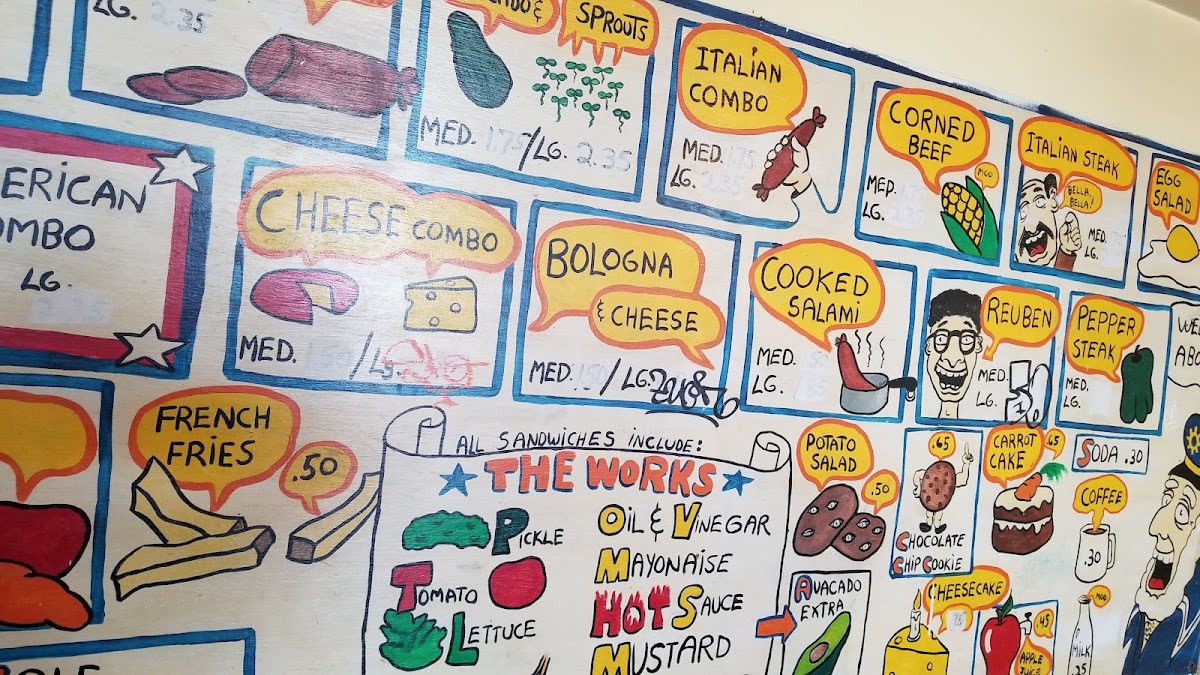 LG. 2.35
&
SPROUTS
MED. 1.75/LG. 2.35
ITALIAN
COMBO
MED. 1.75
LG. 2.35
CORNED
BEEF
MOO
MED.
LG.
ITALIAN STEAK
BELLA,
BELLA!
MED.
LG.
EGG
SALAD
ERICAN
OMBO
LG.
CHEESE COMBO
MED. /LG.
BOLOGNA
& CHEESE
MED. 1.50/LG.
COOKED
SALAMI
MED.
LG.
REUBEN
MED.
LG.
PEPPER
STEAK
MED.
LG.
WE
ABO
FRENCH
FRIES
.50
ALL SANDWICHES INCLUDE:
THE WORKS
PICKLE
TOMATO
LETTUCE
OIL & VINEGAR
MAYONAISE
HOT SAUCE
MUSTARD
POTATO
SALAD
.50
.65
CHOCOLATE
CHIP COOKIE
CARROT
CAKE
.45
SODA .30
COFFEE
.30
AVACADO
EXTRA
CHEESECAKE
.45
APPLE
JUICE
MOO
MILK
.35